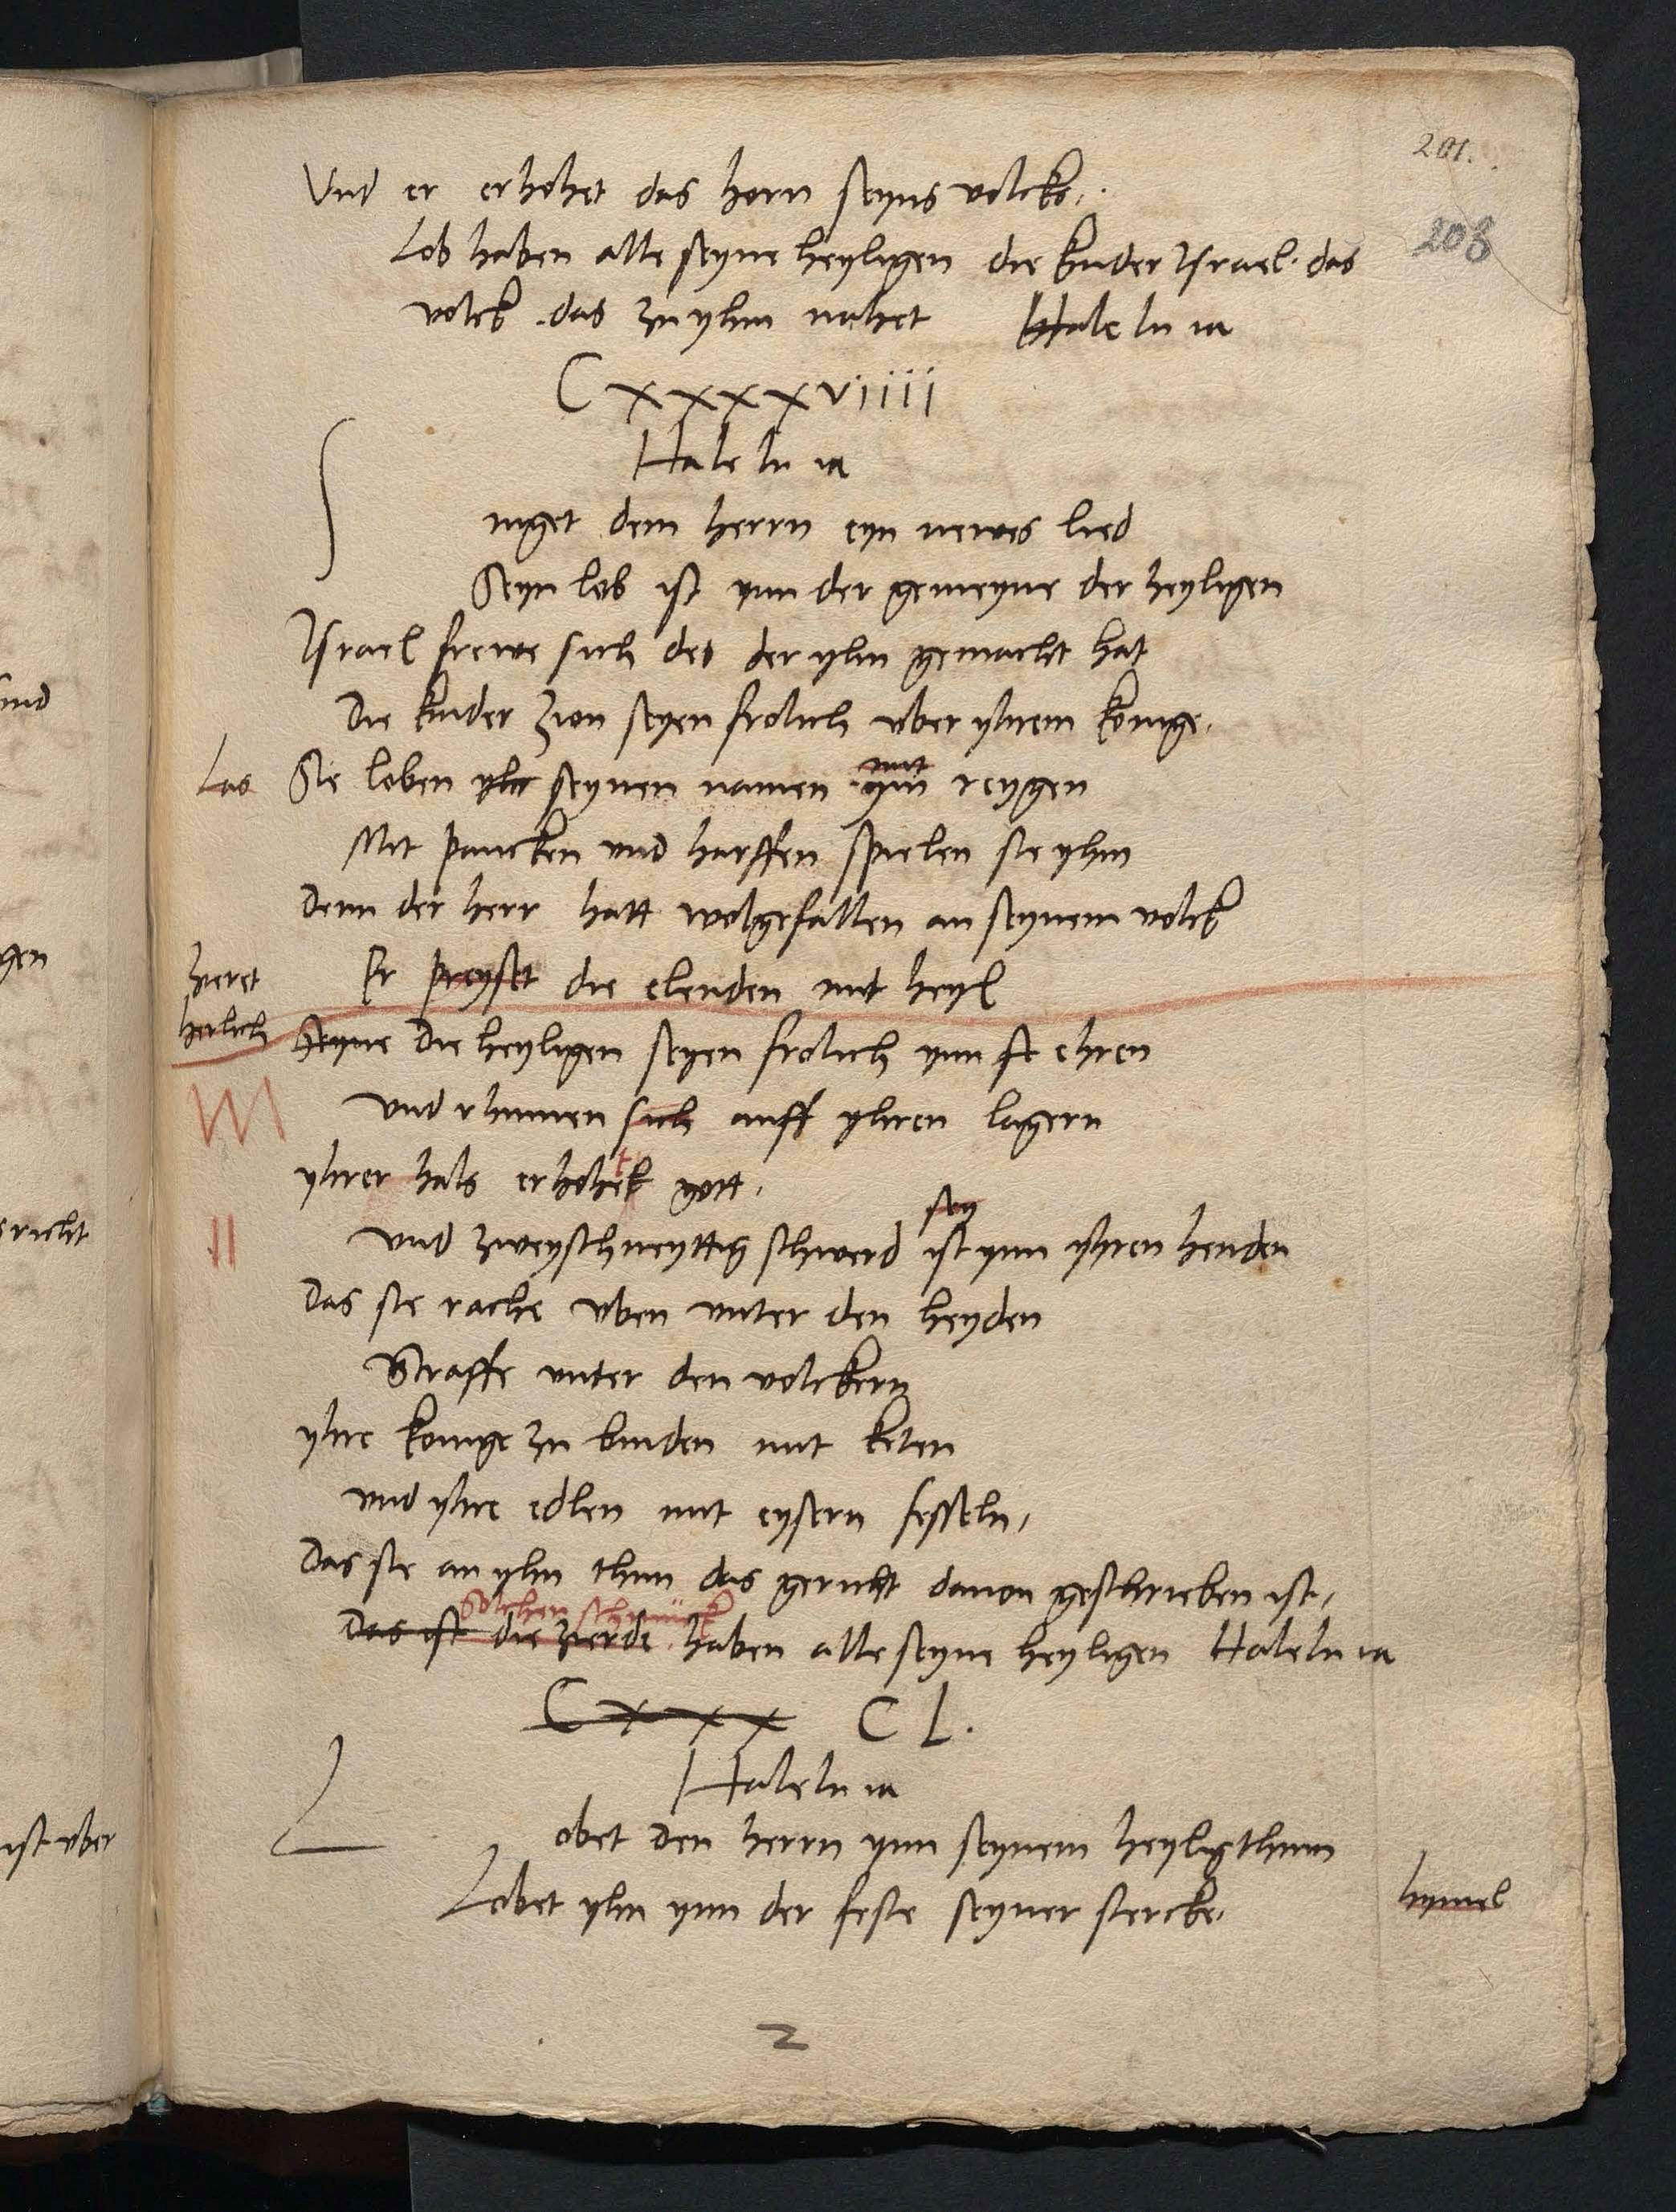 201.
208
Und er erhohet das horn seyns volcks.
Lob haben alle seyne heyligen die kinder Israel. das
volck. das zu yhm nahet Halelu ia
Cxxxxviiii
Halelu ia
S
inget dem herrn eyn newes lied
Seyn lob ist ynn der gemeyne der heyligen
Israel frewe sich des der yhn gemacht hat
Die kinder Zion seyen frolich uber yhrem konige.
mit
Las Sie loben yhr seynen namen ym reygen
Mit paucken und harffen spielen sie yhm
Denn der herr hatt wolgefallen an seynem volck
zieret Er preyset die elenden mit heyl
herlich Seyne Die heyligen seyen frolich ynn st ehren
und rhumen sich auff yhren lagern
t
yhrer hals erhohet gott.
sey
und zweyschneyttig schwerd ist ynn yhren henden
Das sie rache uben unter den heyden
Straffe unter den volckern
yhre konige zu binden mit keten
und yhre edlen mit eysern fesseln,
Das sie an yhn thun das gericht davon geschrieben ist,
Solchen schmück
Das ist die zierde haben alle seyne heyligen Halelu ia
Cxxx CL.
Halelu ia
L
obet den herrn ynn seynem heyligthum
Lobet yhn ynn der feste seyner stercke. hymel
2
ind
gen
richt
ist uber